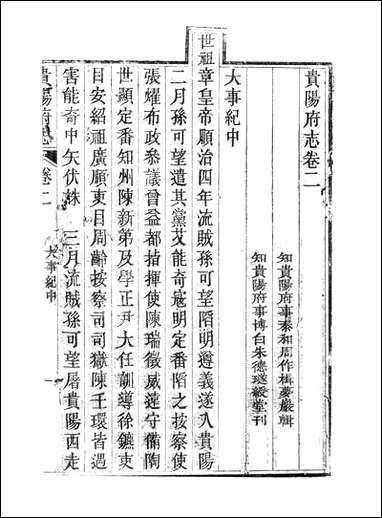 貴陽府志卷二
知貴陽府事泰和周作楫夢巖輯
知貴陽府事博白朱德璲綬堂刊
大事紀中
世祖章皇帝順治四年流賊孫可望陷明遵義遂入貴陽
二月孫可望遣其黨艾能奇寇明定番陷之按察使
張耀布政參議曾益都指揮使陳瑞徵威遠守備陶
世顯定番知州陳新第及學正尹大任訓導徐鑣吏
目安紹祖廣順吏目周齡按察司司獄陳王環皆遇
害能奇中矢伏誅 三月流賊孫可望屠貴陽西走
貴陽府志
卷二
大事紀中
一